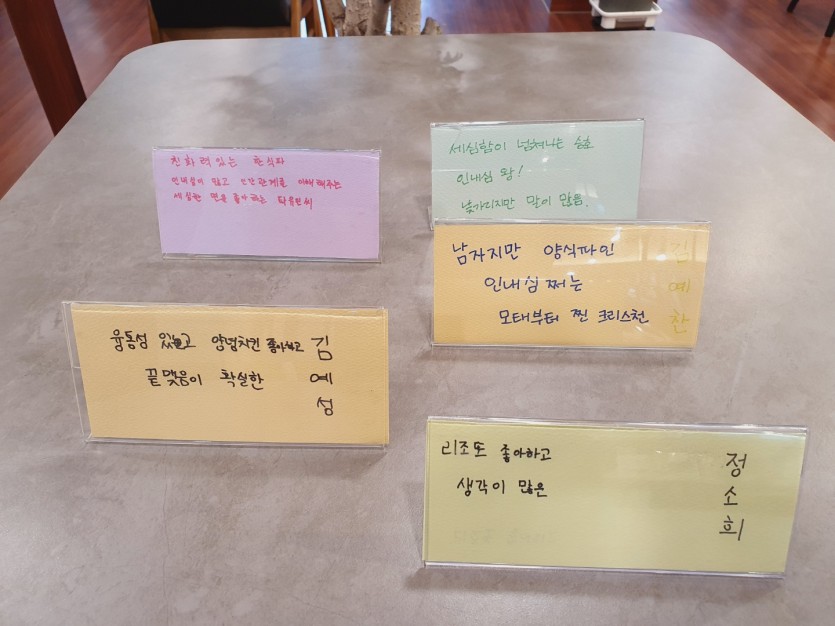 친화력있는 한식파
인내심이 많고 인간관계를 이해해주는
세심한 면을 좋아하는
세심함이 넘쳐나는
인내심 왕!
낯가리지만 말이 많음.
남자지만 양식파인
인내심 쩌는
모태부터 찐 크리스천
김예찬
융통성 있고 양념치킨 좋아하고
끝맺음이 확실한
김예성
리조또 좋아하고
생각이 많은
정소희